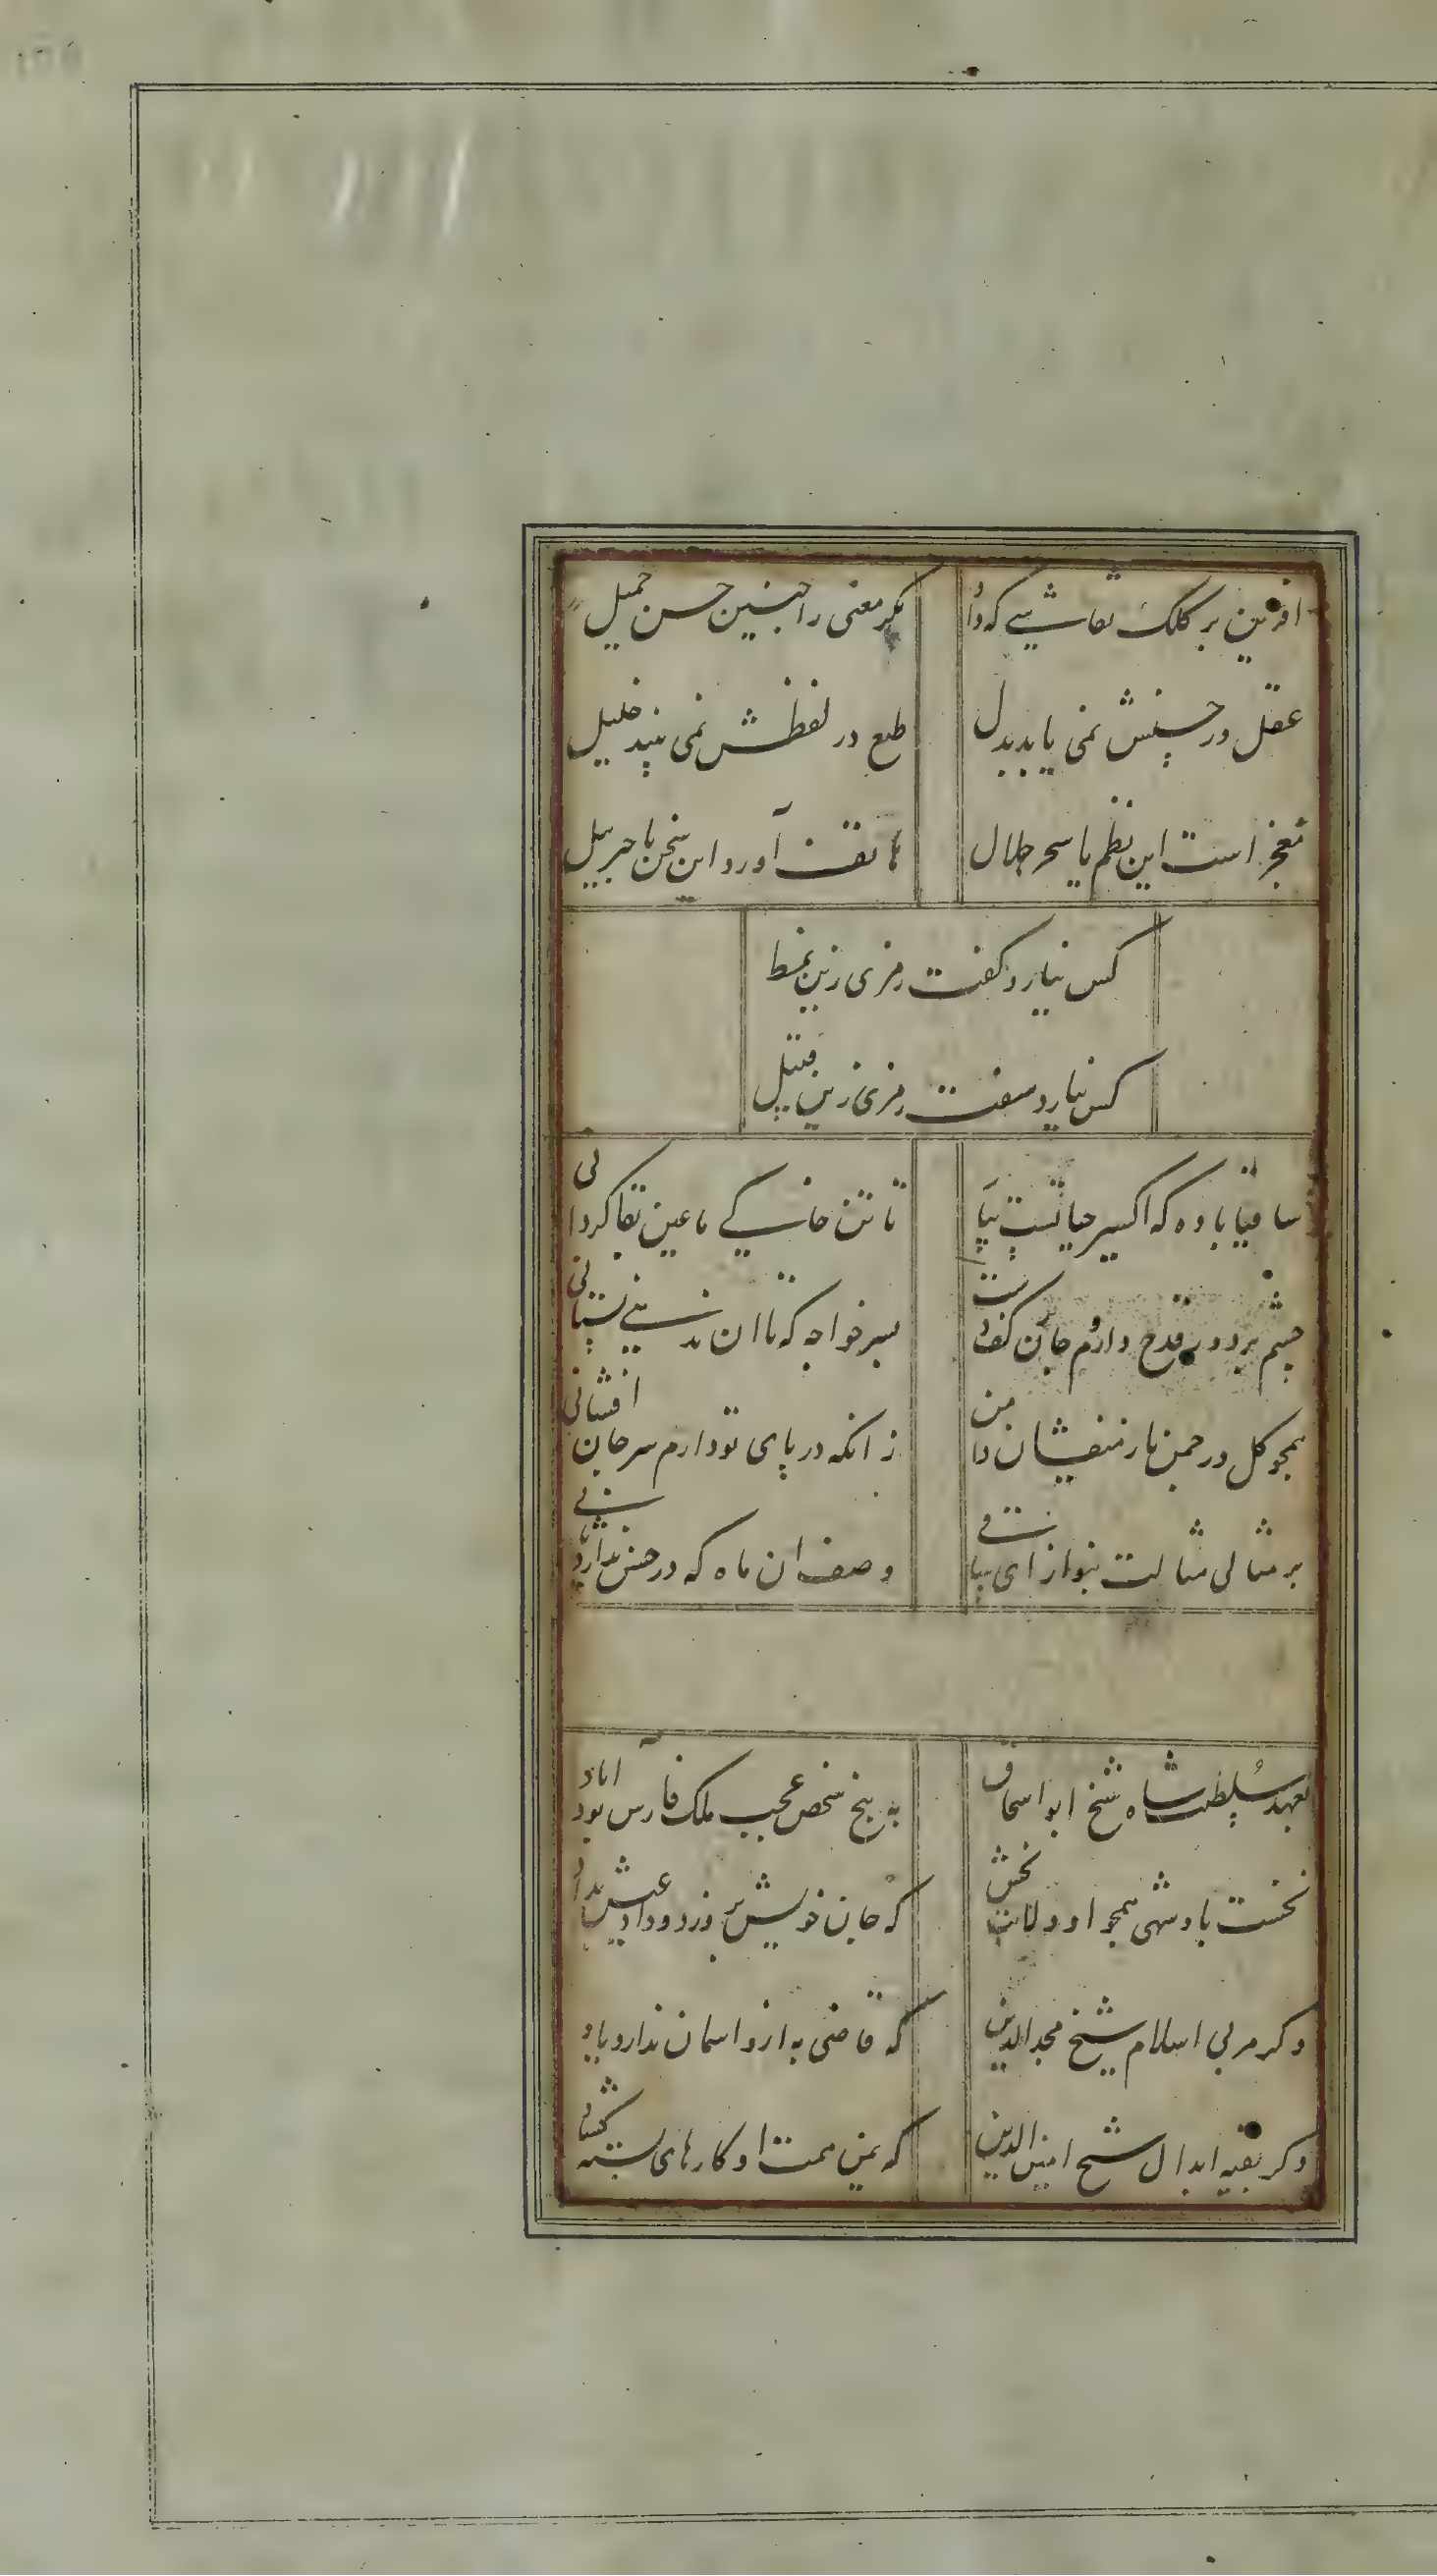 آفرین بر کلک نقاشی که داد
بکر معنی را چنین حسن جمیل
عقل در حسنش نمی یابد بدل
طبع در لفظش نمی بیند خلیل
معجز است این نظم یا سحر حلال
هاتف آورد این سخن یا جبرییل
کس نیارد گفت رمزی زین نمط
کس نیارد سفت رمزی زین قبیل
ساقیا باده که اکسیر حیاتست بیا
تا تن خاکی ما عین بقا گردانی
چشم بر دور قدح دارم و جان بر کف دست
بسر خواجه که تا آن ندهی نستانی
همچو گل در چمن باز میفشان دامن
زانکه در پای تو دارم سر جان افشانی
بر مثالی مثالت بنواز ای ساقی
وصف آن ماه که در حسن ندارد ثانی
بعهد سلطنت شاه شیخ ابو اسحاق
به پنج شخص عجب ملک فارس بود آباد
نخست پادشهی همچو او ولایت بخش
که جان خویش بپرورد و داد عیش بداد
دگر مربی اسلام شیخ مجدالدین
که قاضی به ازو آسمان ندارد یاد
دگر بقیه ابدال شیخ امین الدین
که یمن همت او کارهای بسته گشاد